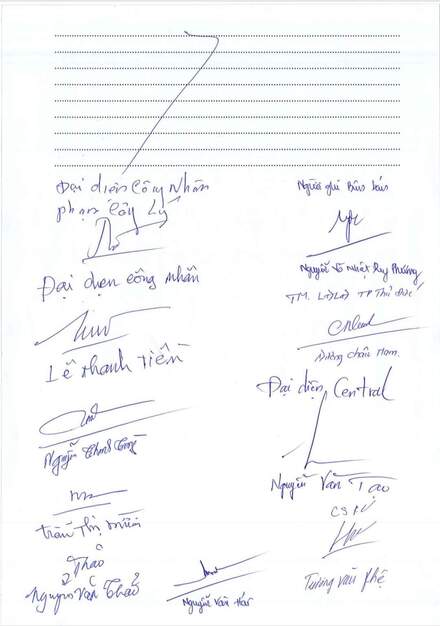 Đại diện Công Nhân
phạm Công Lý
Đại diện công nhân
Lê Thanh Tiền
Nguyễn
Trần Thị Mười
Thảo
Nguyễn Văn Thảo
Nguyễn Văn Hải
Người ghi Biên bản
Nguyễn Võ Nhật Duy Phương
TM. LĐLĐ TP Thủ Đức
Dương Châu Nam
Đại diện Central
Nguyễn Văn Tạo
Tường Văn Phê